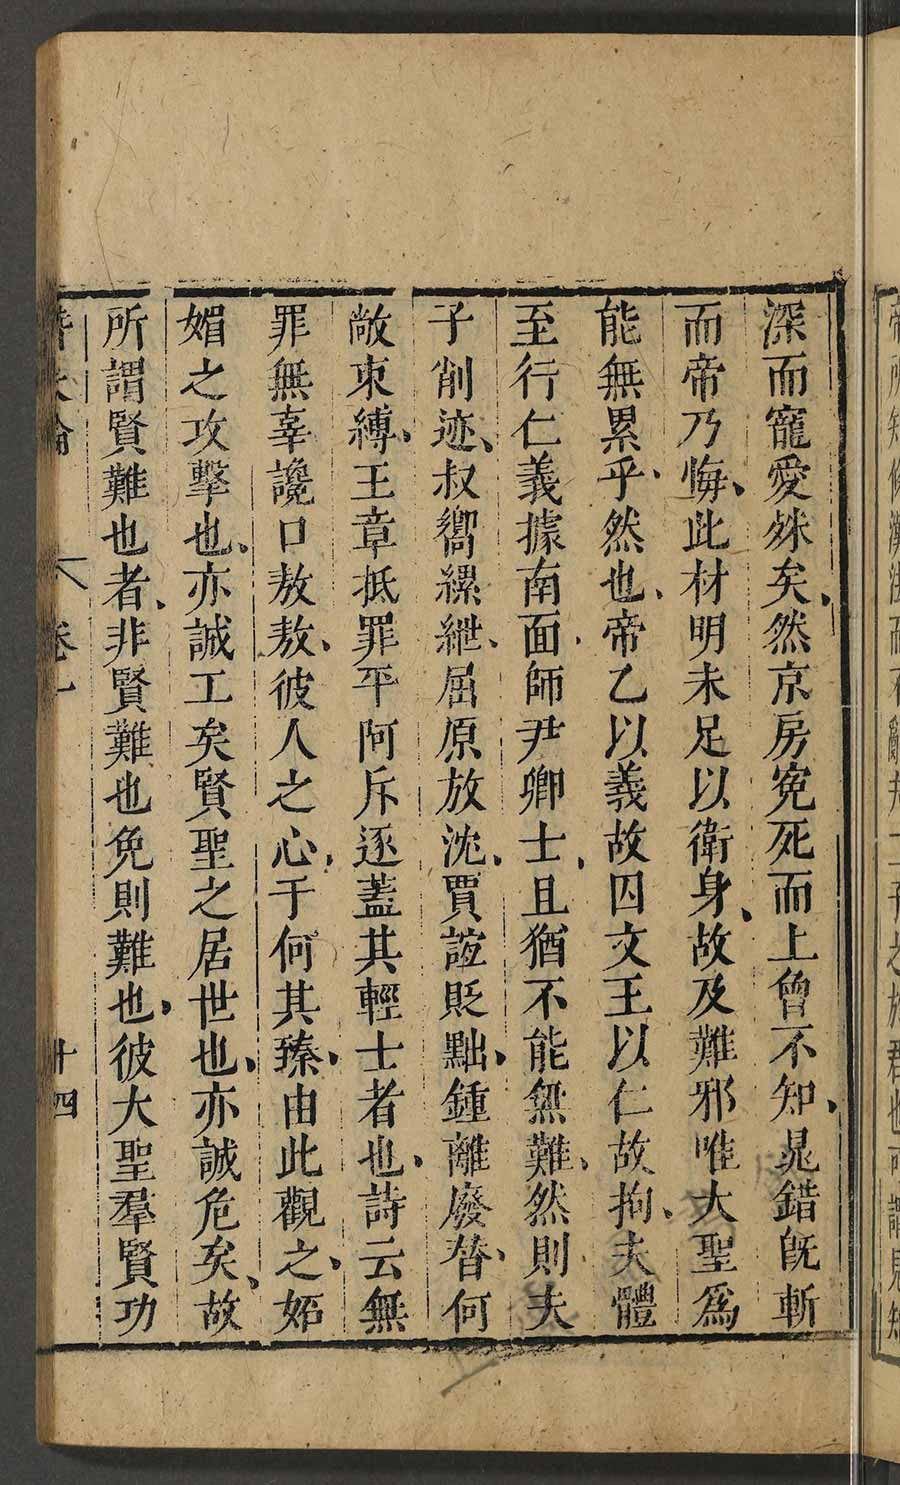 深而寵愛殊矣、然京房冤死而上曾不知、晁錯旣斬
而帝乃悔、此材明未足以衛身、故及難邪唯大聖爲
能無累乎、然也、帝乙以義故囚文王以仁故拘、夫體
至行仁義據南面、師尹卿士、且猶不能無難、然則夫
子削迹、叔嚮縲紲、屈原放沈、賈誼貶黜、鍾離廢替、何
敞束縛、王章抵罪平阿斥逐蓋其輕士者也、詩云無
罪無辜讒口敖敖、彼人之心、于何其臻、由此觀之、妬
媚之攻擊也、亦誠工矣賢聖之居世也、亦誠危矣、故
所謂賢難也者、非賢難也免則難也、彼大聖羣賢功
卷一
十四